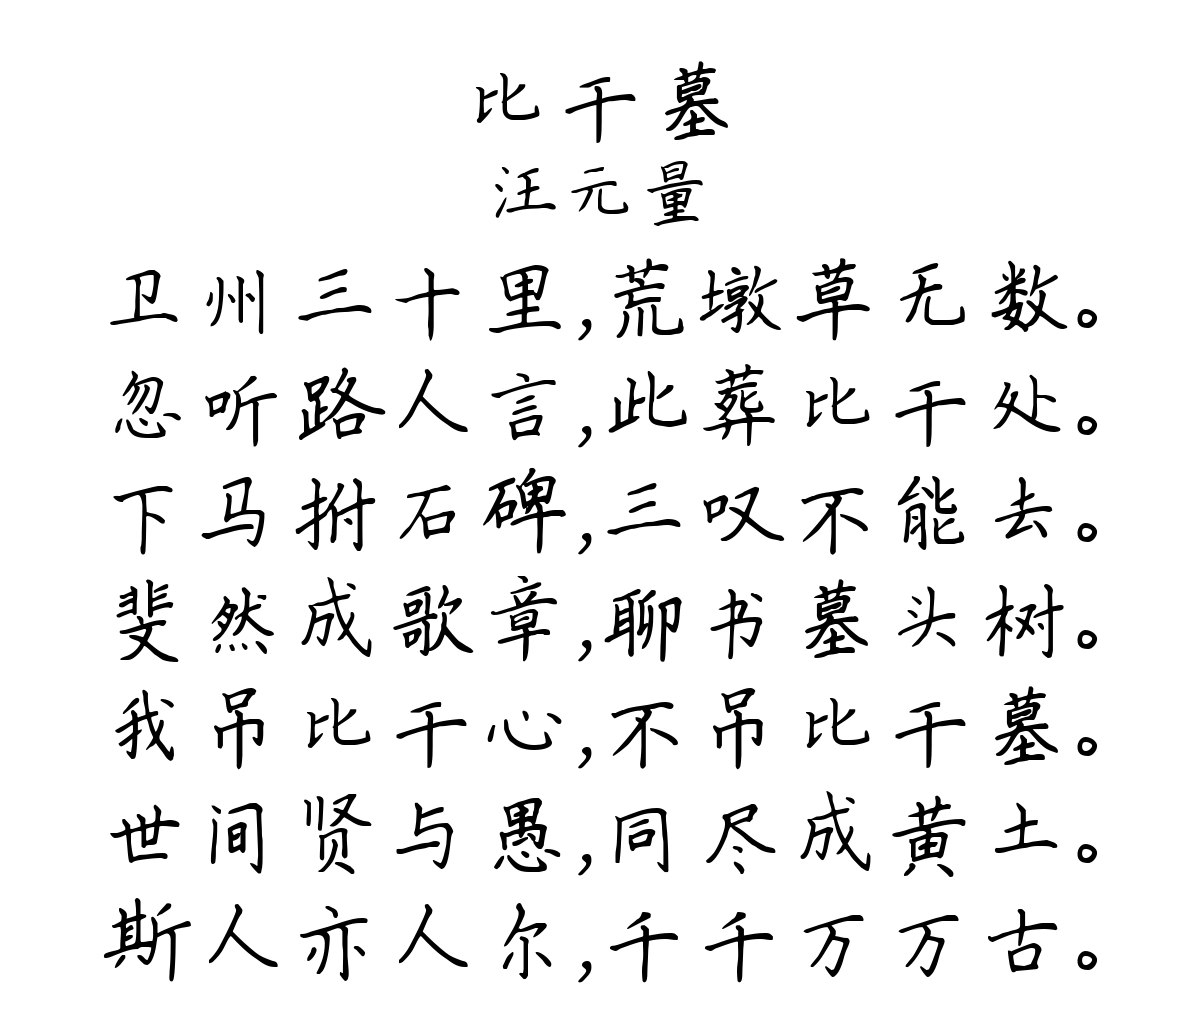 比干墓
汪元量
卫州三十里,荒墩草无数。
忽听路人言,此葬比干处。
下马拊石碑,三叹不能去。
斐然成歌章,聊书墓头树。
我吊比干心,不吊比干墓。
世间贤与愚,同尽成黄土。
斯人亦人尔,千千万万古。